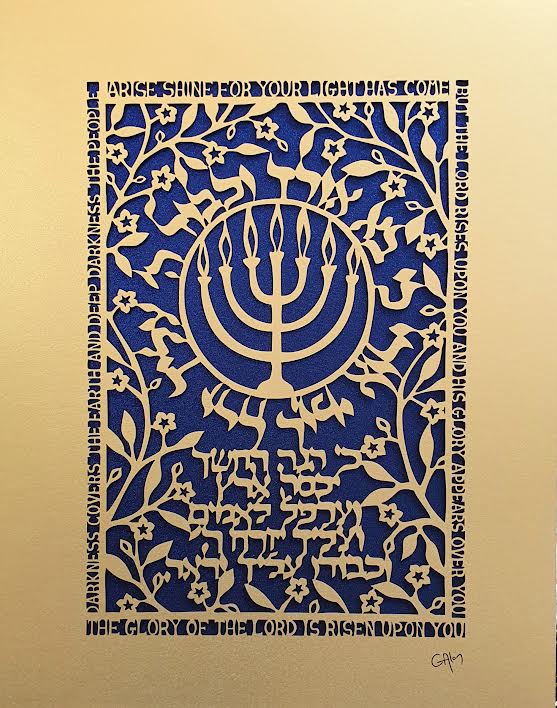 ARISE SHINE FOR YOUR LIGHT HAS COME
THE GLORY OF THE LORD IS RISEN UPON YOU
DARKNESS COVERS THE EARTH AND DEEP DARKNESS THE PEOPLE
BUT THE LORD RISES UPON YOU AND HIS GLORY APPEARS OVER YOU
כי הנה החשך
יכסה ארץ
וערפל לאמים
ועליך יזרח
וכבודו עליך יראה